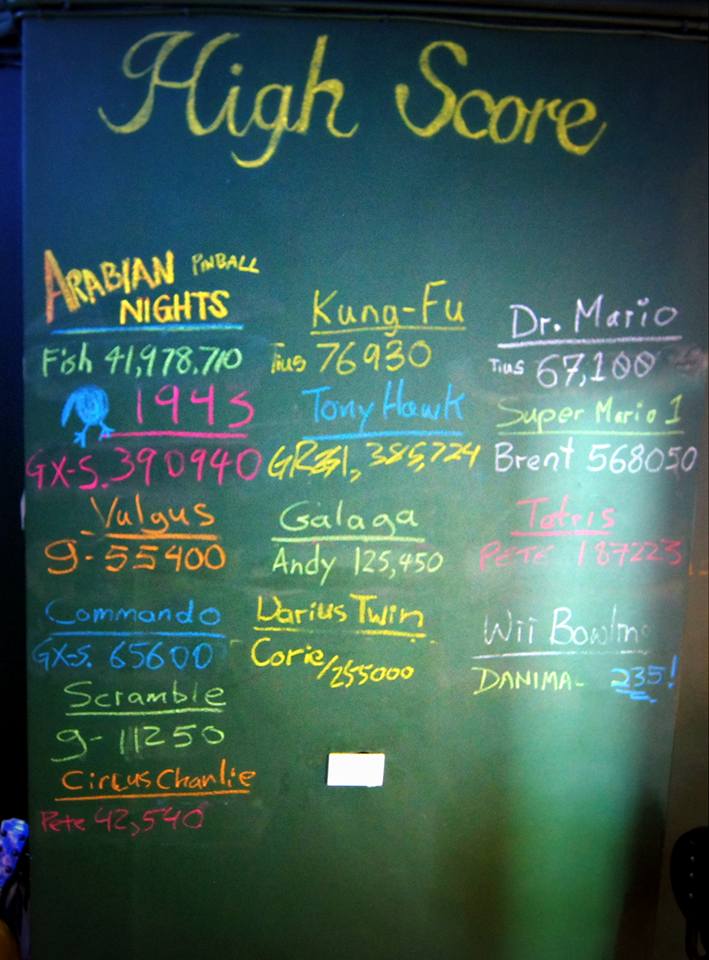 High Score
ARABIAN PINBALL
NIGHTS
Fish 41,978,710
1945
GX-S. 390940
Vulgus
g-55400
Commando
GX-S. 65600
Scramble
g-11250
Circus Charlie
Pete 42,540
Kung-Fu
Tius 76930
Tony Hawk
Galaga
Andy 125,450
Darius Twin
Corie/255000
Dr. Mario
Tius 67,100
Super Mario 1
Brent 568050
Tetris
PETE 187223
Wii Bowling
DANIMA- 235!